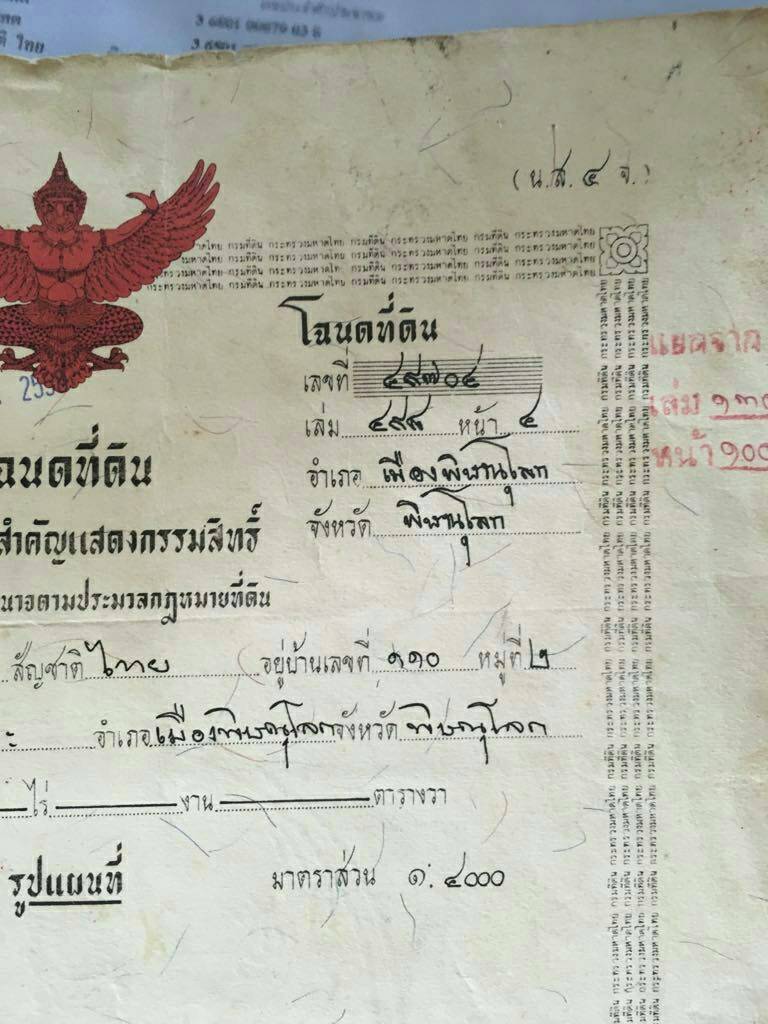 ทศ
ติ ไทย
3 6501 00676 03 8
(น.ส. ๔ จ.)
กรมที่ดิน กระทรวงมหาดไทย กรมที่ดิน กระทรวงมหาดไทย กรมที่ดิน กระทรวงมหาดไทย
โฉนดที่ดิน
เลขที่ ๔๙๗๐๔
เล่ม ๔๙๘ หน้า ๔
อำเภอ เมืองพิษณุโลก
จังหวัด พิษณุโลก
แยกจาก
เล่ม ๑๓๐
หน้า ๑๐๐
ฉนดที่ดิน
สำคัญแสดงกรรมสิทธิ์
นาจตามประมวลกฎหมายที่ดิน
สัญชาติ ไทย อยู่บ้านเลขที่ ๑๑๐ หมู่ที่ ๒
อำเภอ เมืองพิษณุโลก จังหวัด พิษณุโลก
ไร่ งาน ตารางวา
รูปแผนที่ มาตราส่วน ๑:๔๐๐๐